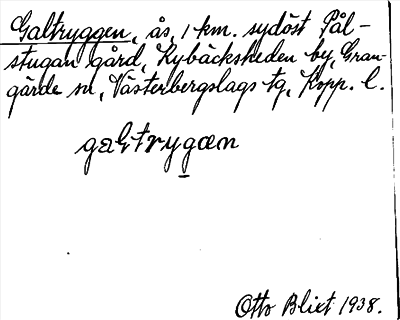 Galtryggen, ås, 1 km. sydöst Pål-
stugan gård, Kybäcksheden by, Gran-
gärde sn, Västerbergslags tg, Kopp. l.
gaLtrygæn
Otto Blixt 1938.